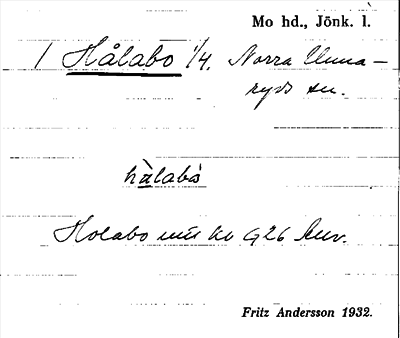 Mo hd., Jönk. l.
1 Hålabo 1/4. Norra Unna-
ryds sn.
hàlabó
Holabo
Fritz Andersson 1932.